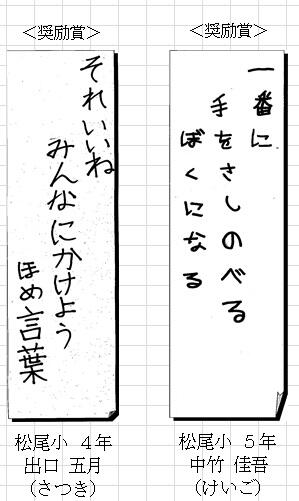 ＜奨励賞＞
一番に
手をさしのべる
ぼくになる
松尾小 ５年
中竹 佳吾
(けいご)
＜奨励賞＞
それいいね
みんなにかけよう
ほめ言葉
松尾小 ４年
出口 五月
(さつき)